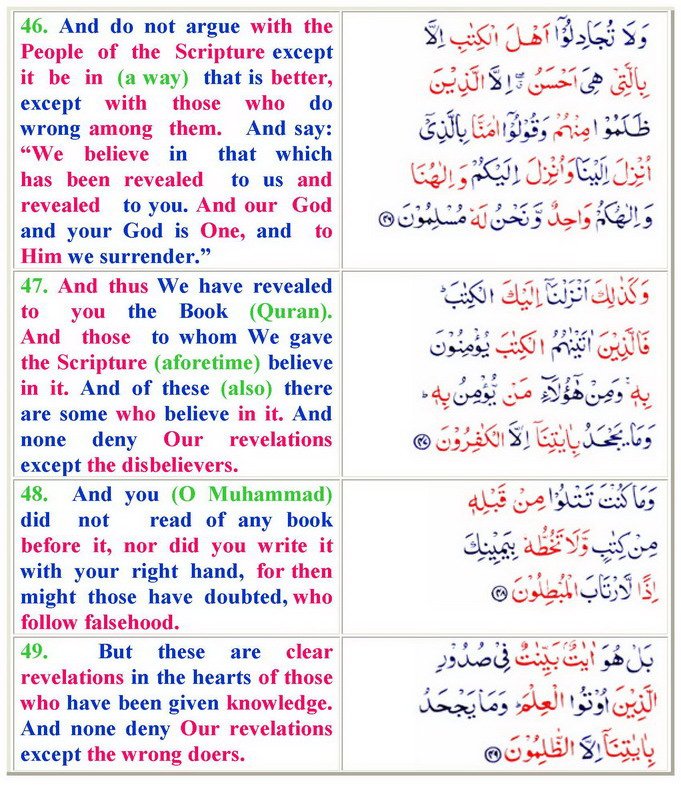 46. And do not argue with the
People of the Scripture except
it be in (a way) that is better,
except with those who do
wrong among them. And say:
“We believe in that which
has been revealed to us and
revealed to you. And our God
and your God is One, and to
Him we surrender.”
وَلَا تُجَادِلُوْٓا اَهْلَ الْكِتٰبِ اِلَّا
بِالَّتِيْ هِيَ اَحْسَنُ ۖ اِلَّا الَّذِيْنَ
ظَلَمُوْا مِنْهُمْ وَقُوْلُوْٓا اٰمَنَّا بِالَّذِيْٓ
اُنْزِلَ اِلَيْنَا وَاُنْزِلَ اِلَيْكُمْ وَاِلٰهُنَا
وَاِلٰهُكُمْ وَاحِدٌ وَّنَحْنُ لَهٗ مُسْلِمُوْنَ ۴۶
47. And thus We have revealed
to you the Book (Quran).
And those to whom We gave
the Scripture (aforetime) believe
in it. And of these (also) there
are some who believe in it. And
none deny Our revelations
except the disbelievers.
وَكَذٰلِكَ اَنْزَلْنَآ اِلَيْكَ الْكِتٰبَ ؕ
فَالَّذِيْنَ اٰتَيْنٰهُمُ الْكِتٰبَ يُؤْمِنُوْنَ
بِهٖ ۚ وَمِنْ هٰٓؤُلَآءِ مَنْ يُّؤْمِنُ بِهٖ ؕ
وَمَا يَجْحَدُ بِاٰيٰتِنَآ اِلَّا الْكٰفِرُوْنَ ۴۷
48. And you (O Muhammad)
did not read of any book
before it, nor did you write it
with your right hand, for then
might those have doubted, who
follow falsehood.
وَمَا كُنْتَ تَتْلُوْا مِنْ قَبْلِهٖ
مِنْ كِتٰبٍ وَّلَا تَخُطُّهٗ بِيَمِيْنِكَ
اِذًا لَّارْتَابَ الْمُبْطِلُوْنَ ۴۸
49. But these are clear
revelations in the hearts of those
who have been given knowledge.
And none deny Our revelations
except the wrong doers.
بَلْ هُوَ اٰيٰتٌۢ بَيِّنٰتٌ فِيْ صُدُوْرِ
الَّذِيْنَ اُوْتُوا الْعِلْمَ ؕ وَمَا يَجْحَدُ
بِاٰيٰتِنَآ اِلَّا الظّٰلِمُوْنَ ۴۹